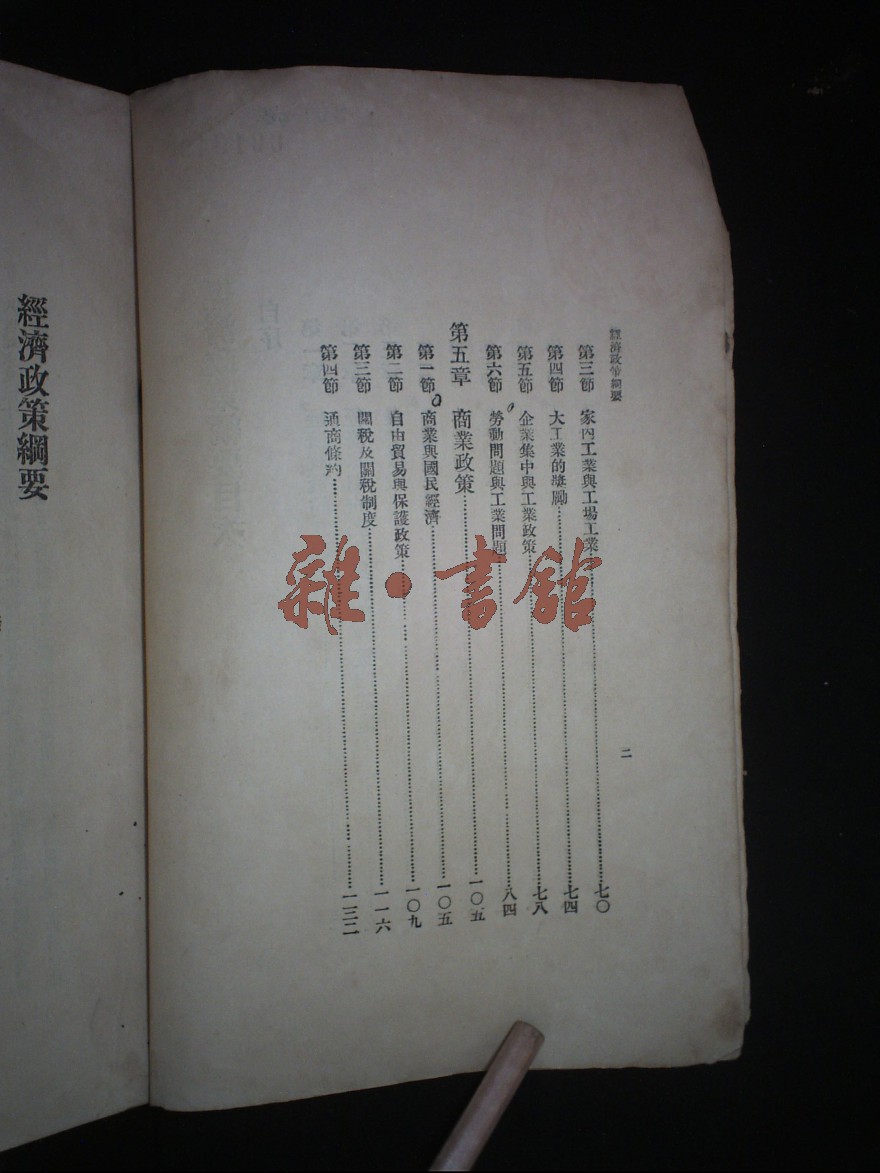 經濟政策綱要
二
第三節 家內工業與工場工業……七〇
第四節 大工業的獎勵……七四
第五節 企業集中與工業政策……七八
第六節 勞動問題與工業問題……八四
第五章 商業政策……一〇五
第一節 商業與國民經濟……一〇五
第二節 自由貿易與保護政策……一〇九
第三節 關稅及關稅制度……一一六
第四節 通商條約……一二二
經濟政策綱要
雜·書館